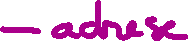 – adrese